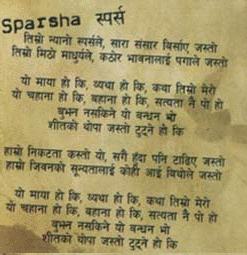 Sparsha स्पर्स
तिम्रो न्यानो स्पर्सले, सारा संसार बिर्साए जस्तो
तिम्रो मिठो माधुर्यले, कठोर भावनालाई पगाले जस्तो
यो माया हो कि, व्यथा हो कि, कथा तिम्रो मेरो
यो चहाना हो कि, बहाना हो कि, सत्यता नै पो हो
बुझ्न नसकिने यो बन्धन भो
शीतको थोपा जस्तो टुट्ने हो कि
हाम्रो निकटता कस्तो यो, सगै हुंदा पनि टाढिए जस्तो
हाम्रो जिवनको सून्यतालाई कोही आई बिथोले जस्तो
यो माया हो कि, व्यथा हो कि, कथा तिम्रो मेरो
यो चहाना हो कि, बहाना हो कि, सत्यता नै पो हो
बुझ्न नसकिने यो बन्धन भो
शीतको थोपा जस्तो टुट्ने हो कि